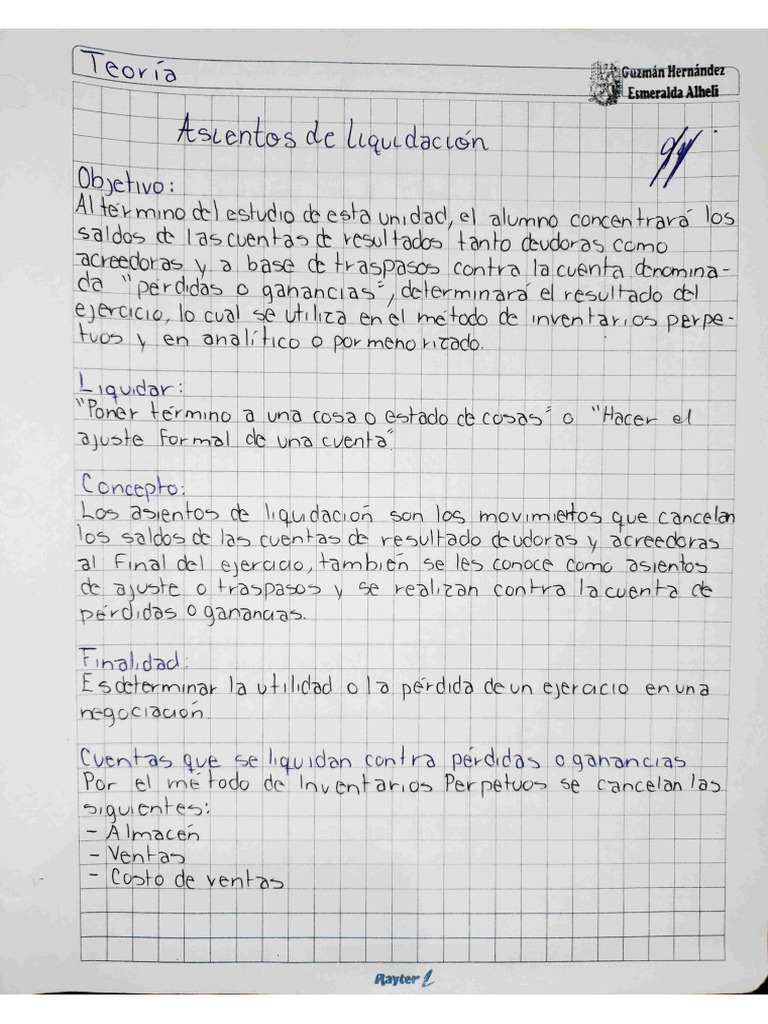 Teoría
Guzmán Hernández
Esmeralda Alheli
Asientos de liquidación
Objetivo:
Al término del estudio de esta unidad, el alumno concentrará los
saldos de las cuentas de resultados tanto deudoras como
acreedoras y a base de traspasos contra la cuenta denomina-
da "pérdidas o ganancias", determinará el resultado del
ejercicio, lo cual se utiliza en el método de inventarios perpe-
tuos y en analítico o pormenorizado.
Liquidar:
"Poner término a una cosa o estado de cosas" o "Hacer el
ajuste formal de una cuenta"
Concepto:
Los asientos de liquidación son los movimientos que cancelan
los saldos de las cuentas de resultado deudoras y acreedoras
al final del ejercicio, también se les conoce como asientos
de ajuste o traspasos y se realizan contra la cuenta de
pérdidas o ganancias.
Finalidad:
Es determinar la utilidad o la pérdida de un ejercacio en una
negociación.
Cuentas que se liquidan contra pérdidas o ganancias
Por el método de Inventarios Perpetuos se cancelan las
siguientes:
- Almacén
- Ventas
- Costo de ventas
Rayter